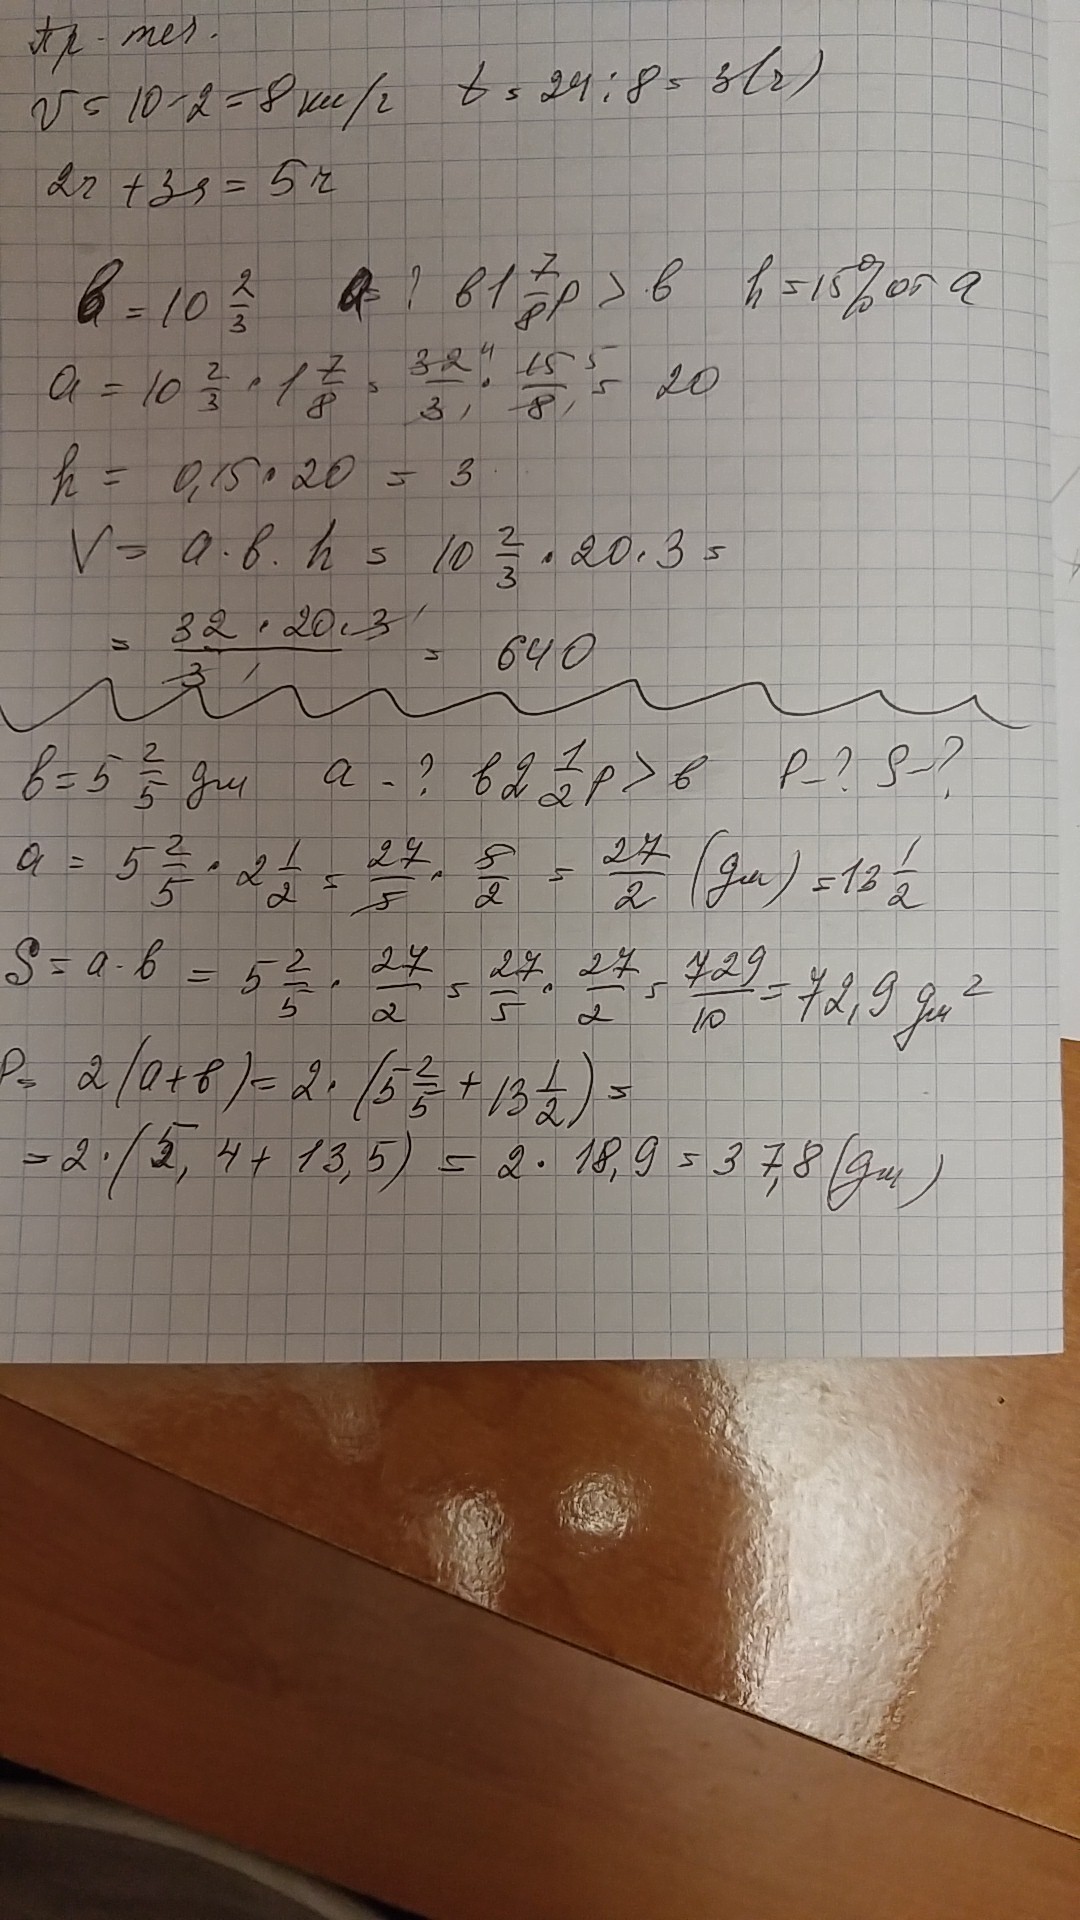 Пр. теч.
v = 10 - 2 = 8 км/ч t = 24 : 8 = 3 (ч)
2ч + 3ч = 5ч
в = 10 2/3 а = ? в 1 7/8 р > в h = 15% от а
а = 10 2/3 · 1 7/8 = 32/3 · 15/8 = 20
h = 0,15 · 20 = 3
V = а · в · h = 10 2/3 · 20 · 3 =
= 32 · 20 · 3 / 3 = 640
в = 5 2/5 дм а - ? в 2 1/2 р > в P - ? S - ?
а = 5 2/5 · 2 1/2 = 27/5 · 5/2 = 27/2 (дм) = 13 1/2
S = а · в = 5 2/5 · 27/2 = 27/5 · 27/2 = 729/10 = 72,9 дм²
P = 2 (а + в) = 2 · (5 2/5 + 13 1/2) =
= 2 · (5,4 + 13,5) = 2 · 18,9 = 37,8 (дм)